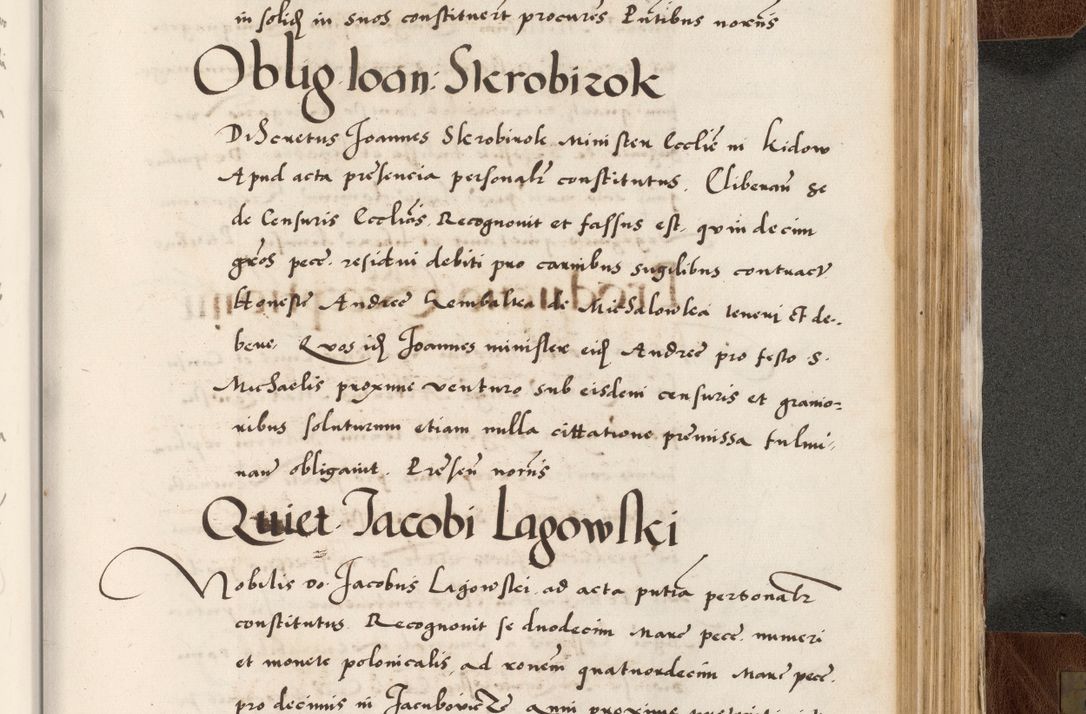 in solid in suos constituert procures Pntibus nornis
Oblig. Ioan: Skrobizok
Discretus Joannes Skrobizok Minister Ecclie in Kidow
Apud acta presencia personalr constitutus. Cliberau se
de Censuris Ecclicis. Recognouit et fassus est. quindecim
gros pecc. residui debiti pro carnibus sugilibus contract
Honeste Andree Rembalka de Michalowka teneri et de-
bere. Quos id Joannes minister eid Andree pro festo S.
Michaelis proxime venturo sub eisdem censuris et grauio-
ribus soluturum etiam nulla cittatione premissa fulmi-
nan obligauit. Presen nornis
Quiet. Jacobi Lagowski
Nobilis vo Jacobus Lagowski ad acta pntia personalr
constitutus. Recognouit se duodecim Marc pecc. numeri
et monete polonicalis, ad ronem quatuordecim Marc pecc.
pro decimis in Jacubovicze Anni proxime